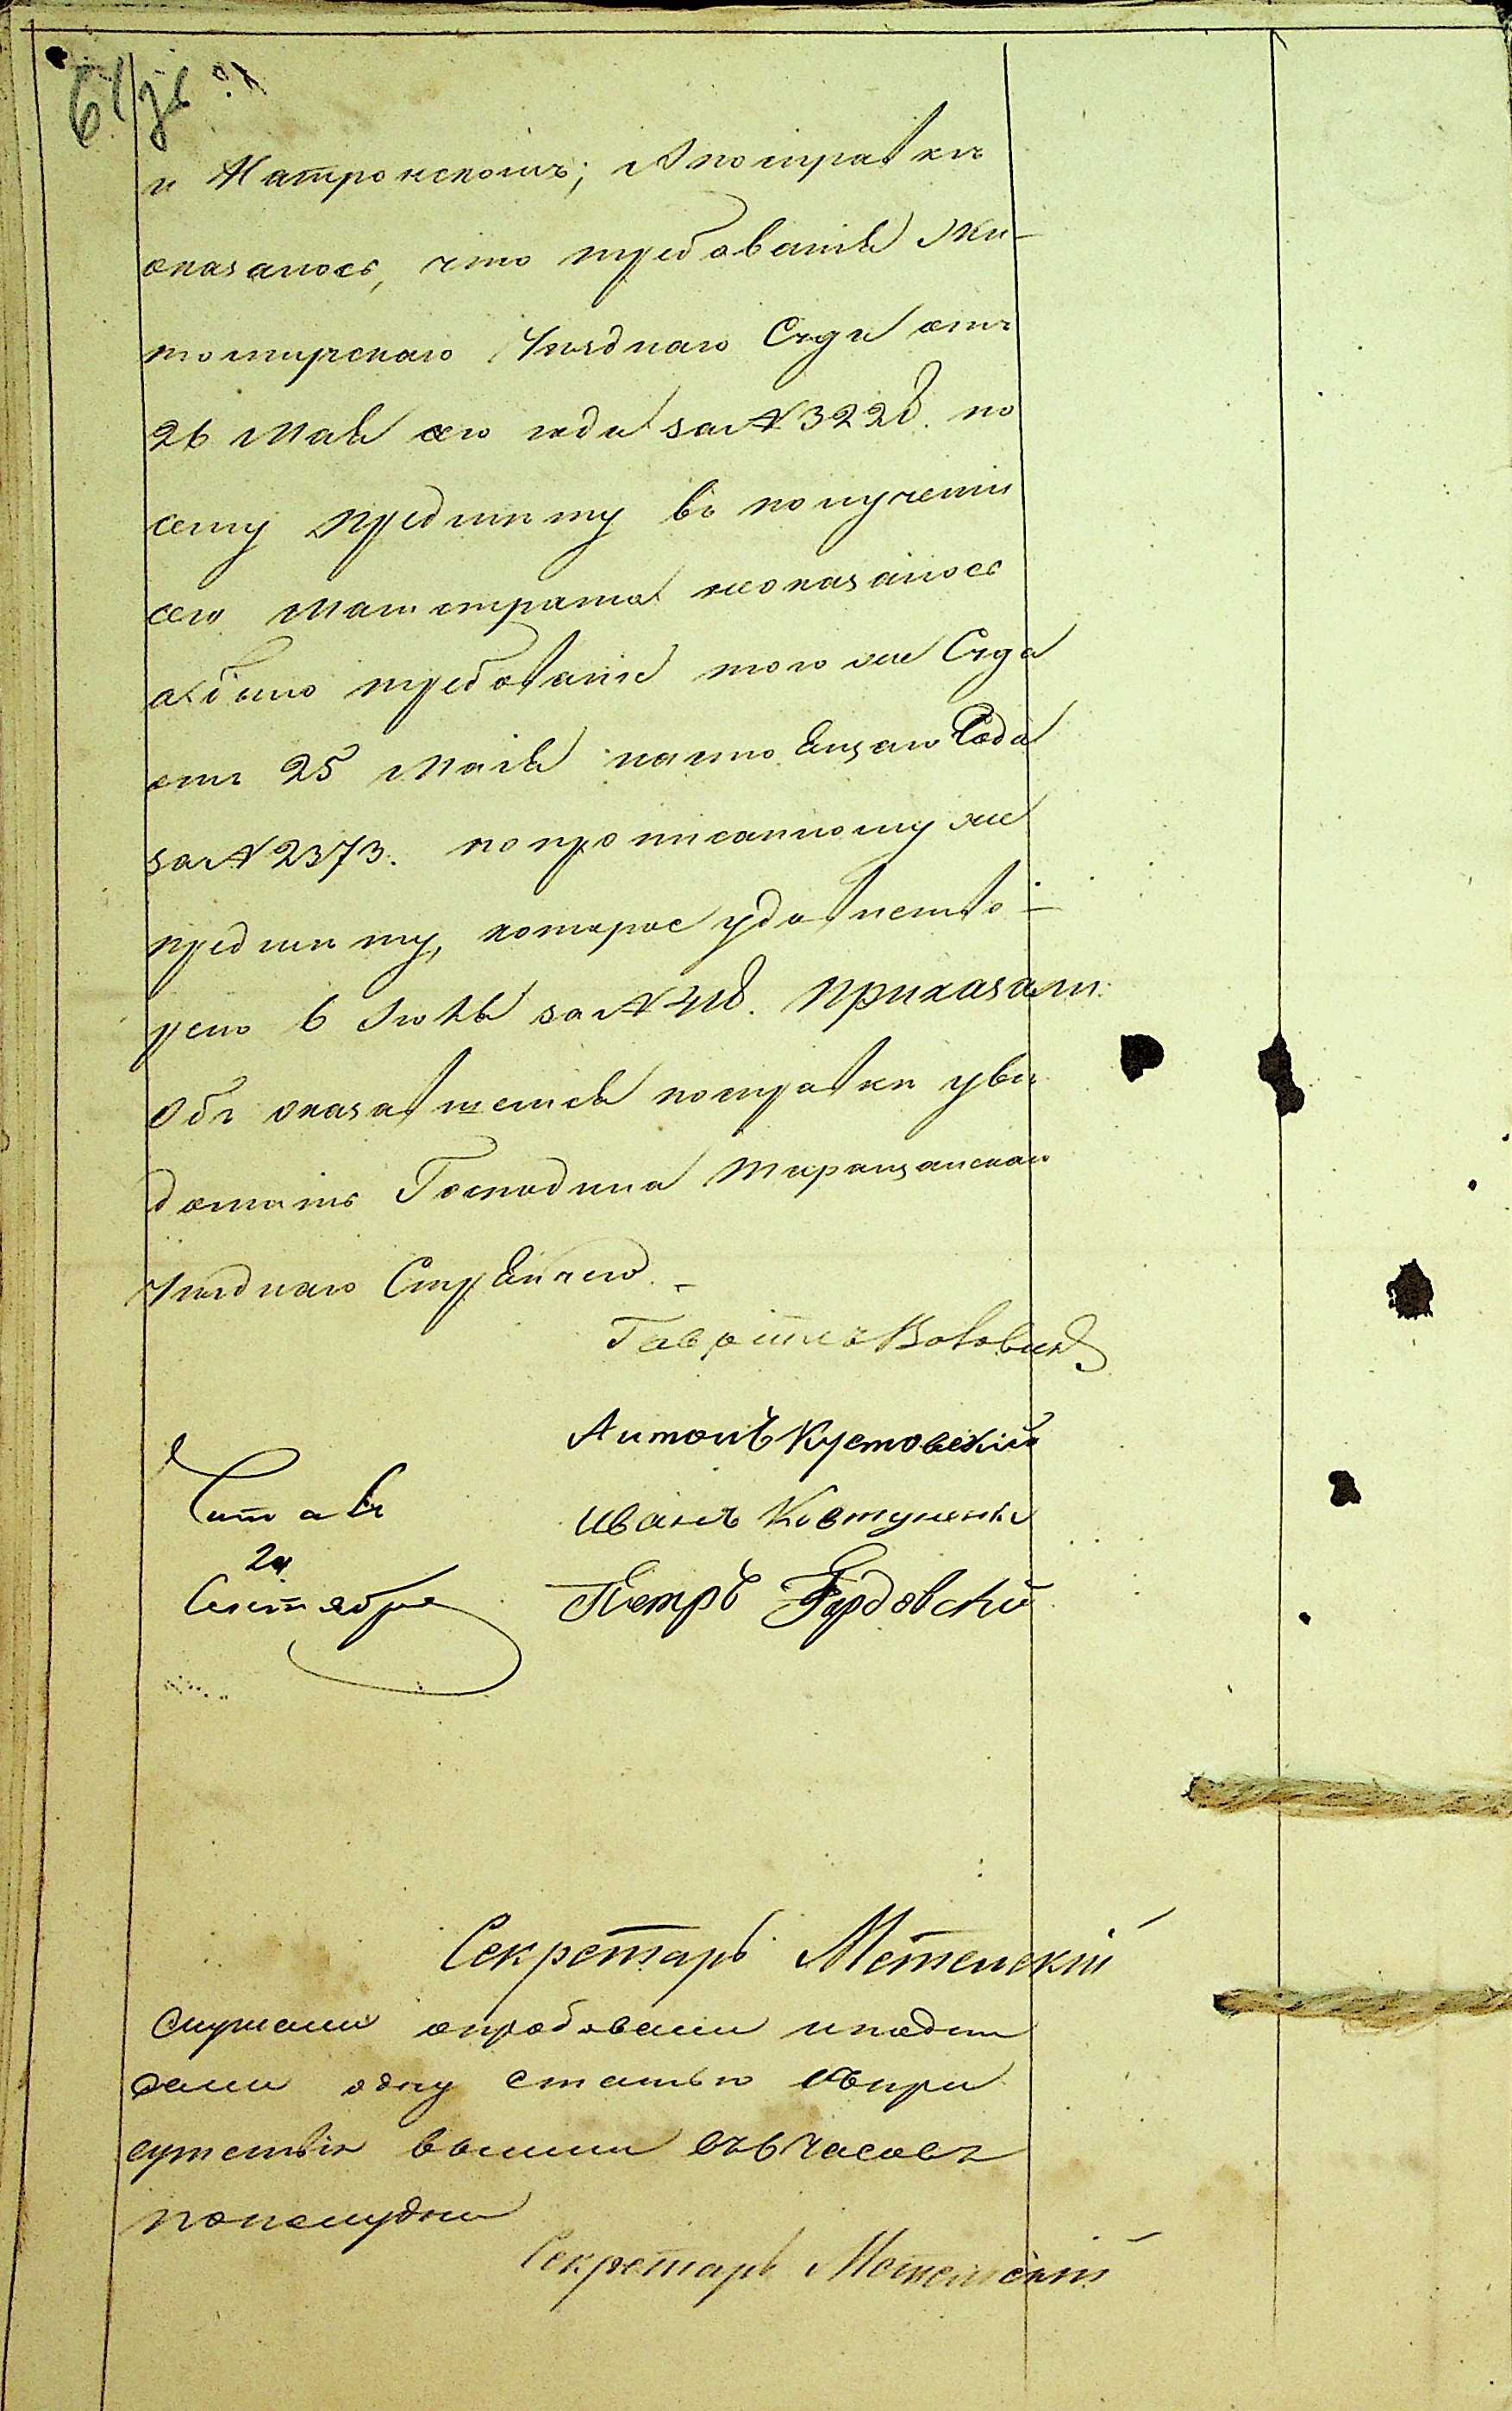 61/зв
и Натронскомъ; А по справкѣ
оказалось, что требованія Жи-
томирскаго Уѣзднаго Суда отъ
26 Мая сего года за № 3228. по
сему предмѣту въ полученіи
сего Магистрата неоказалось
а было требованіе того же Суда
отъ 25 Маія настоящаго Года
за № 2373. по прописанному же
предмѣту, которое удовлетво-
рено 6 Іюля за № 418. Приказали:
Объ оказавшемся по справки уве
домить Господина Таращанскаго
Уѣзднаго Стряпчего. -
Гавріилъ
Антонъ Кустовскій
Читалъ
Иванъ Ковтуненко
24
Сентября
Петръ Гурдовскій
Секретарь Метельскій
Слушали опробовали и подпи
сали одну статью съ при
сутствія вышли въ 6 часовъ
пополудни
Секретарь Метельскій